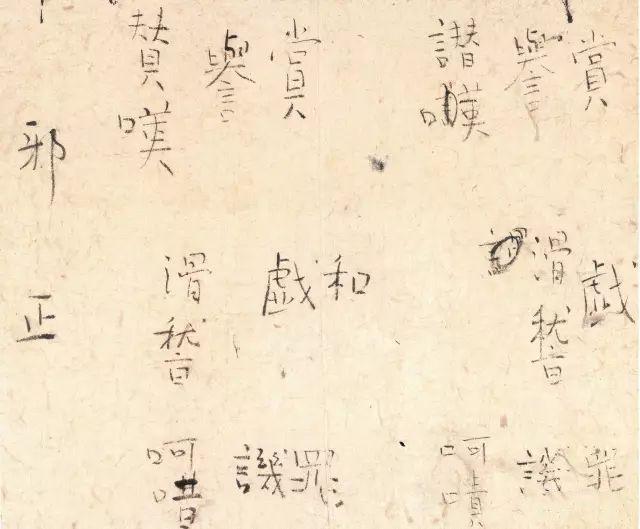 賞 戯 罪
譽 滑稽 譏
嘆 呵嘖
和 罪
賞 戯 譏
譽
賛嘆 滑稽 呵
邪 正